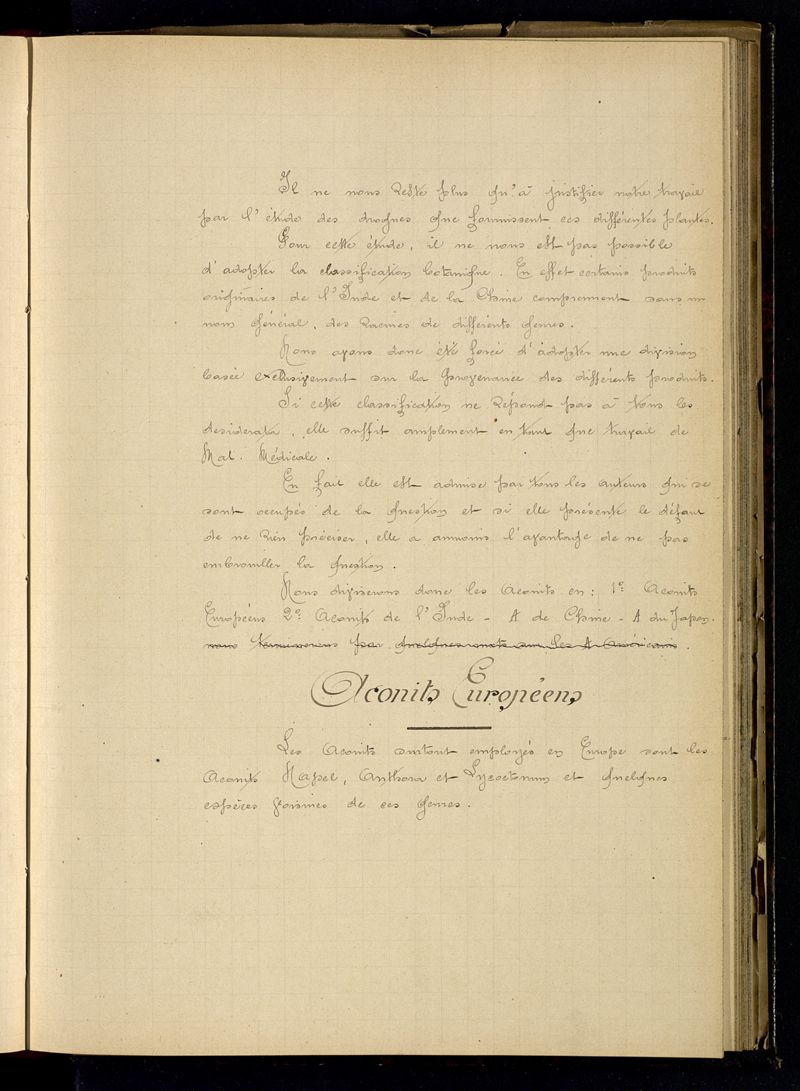 Il ne nous reste plus qu'à justifier notre travail
par l'étude des drogues que fournissent ces différentes plantes.
Pour cette étude, il ne nous est pas possible
d'adopter la classification botanique. En effet certains produits
originaires de l'Inde et de la Chine comprennent sous un
nom général, des racines de différents genres.
Nous avons donc été forcé d'adopter une division
basée exclusivement sur la provenance des différents produits.
Si cette classification ne répond pas à tous les
desiderata, elle suffit amplement en tant que travail de
Mat. Médicale.
En fait elle est admise par tous les auteurs qui se
sont occupés de la question et si elle présente le défaut
de ne rien préciser, elle a au moins l'avantage de ne pas
embrouiller la question.
Nous diviserons donc les Aconits en: 1º Aconits
Européens 2º Aconits de l'Inde - A de Chine - A du Japon.
nous terminerons par quelques mots sur les A Américains.
Aconits Européens
Les Aconits surtout employés en Europe sont les
Aconits Napel, Anthora et Lycoctonum et quelques
espèces voisines de ces genres.